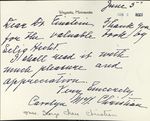 Virginia, Minnesota
June 5—
Dear Dr. Einstein, Thank you
for the valuable book by
Selig Hecht.
I shall read it with
much pleasure and
appreciation.
Very sincerely,
Carolyn Christian
Mrs. Christian